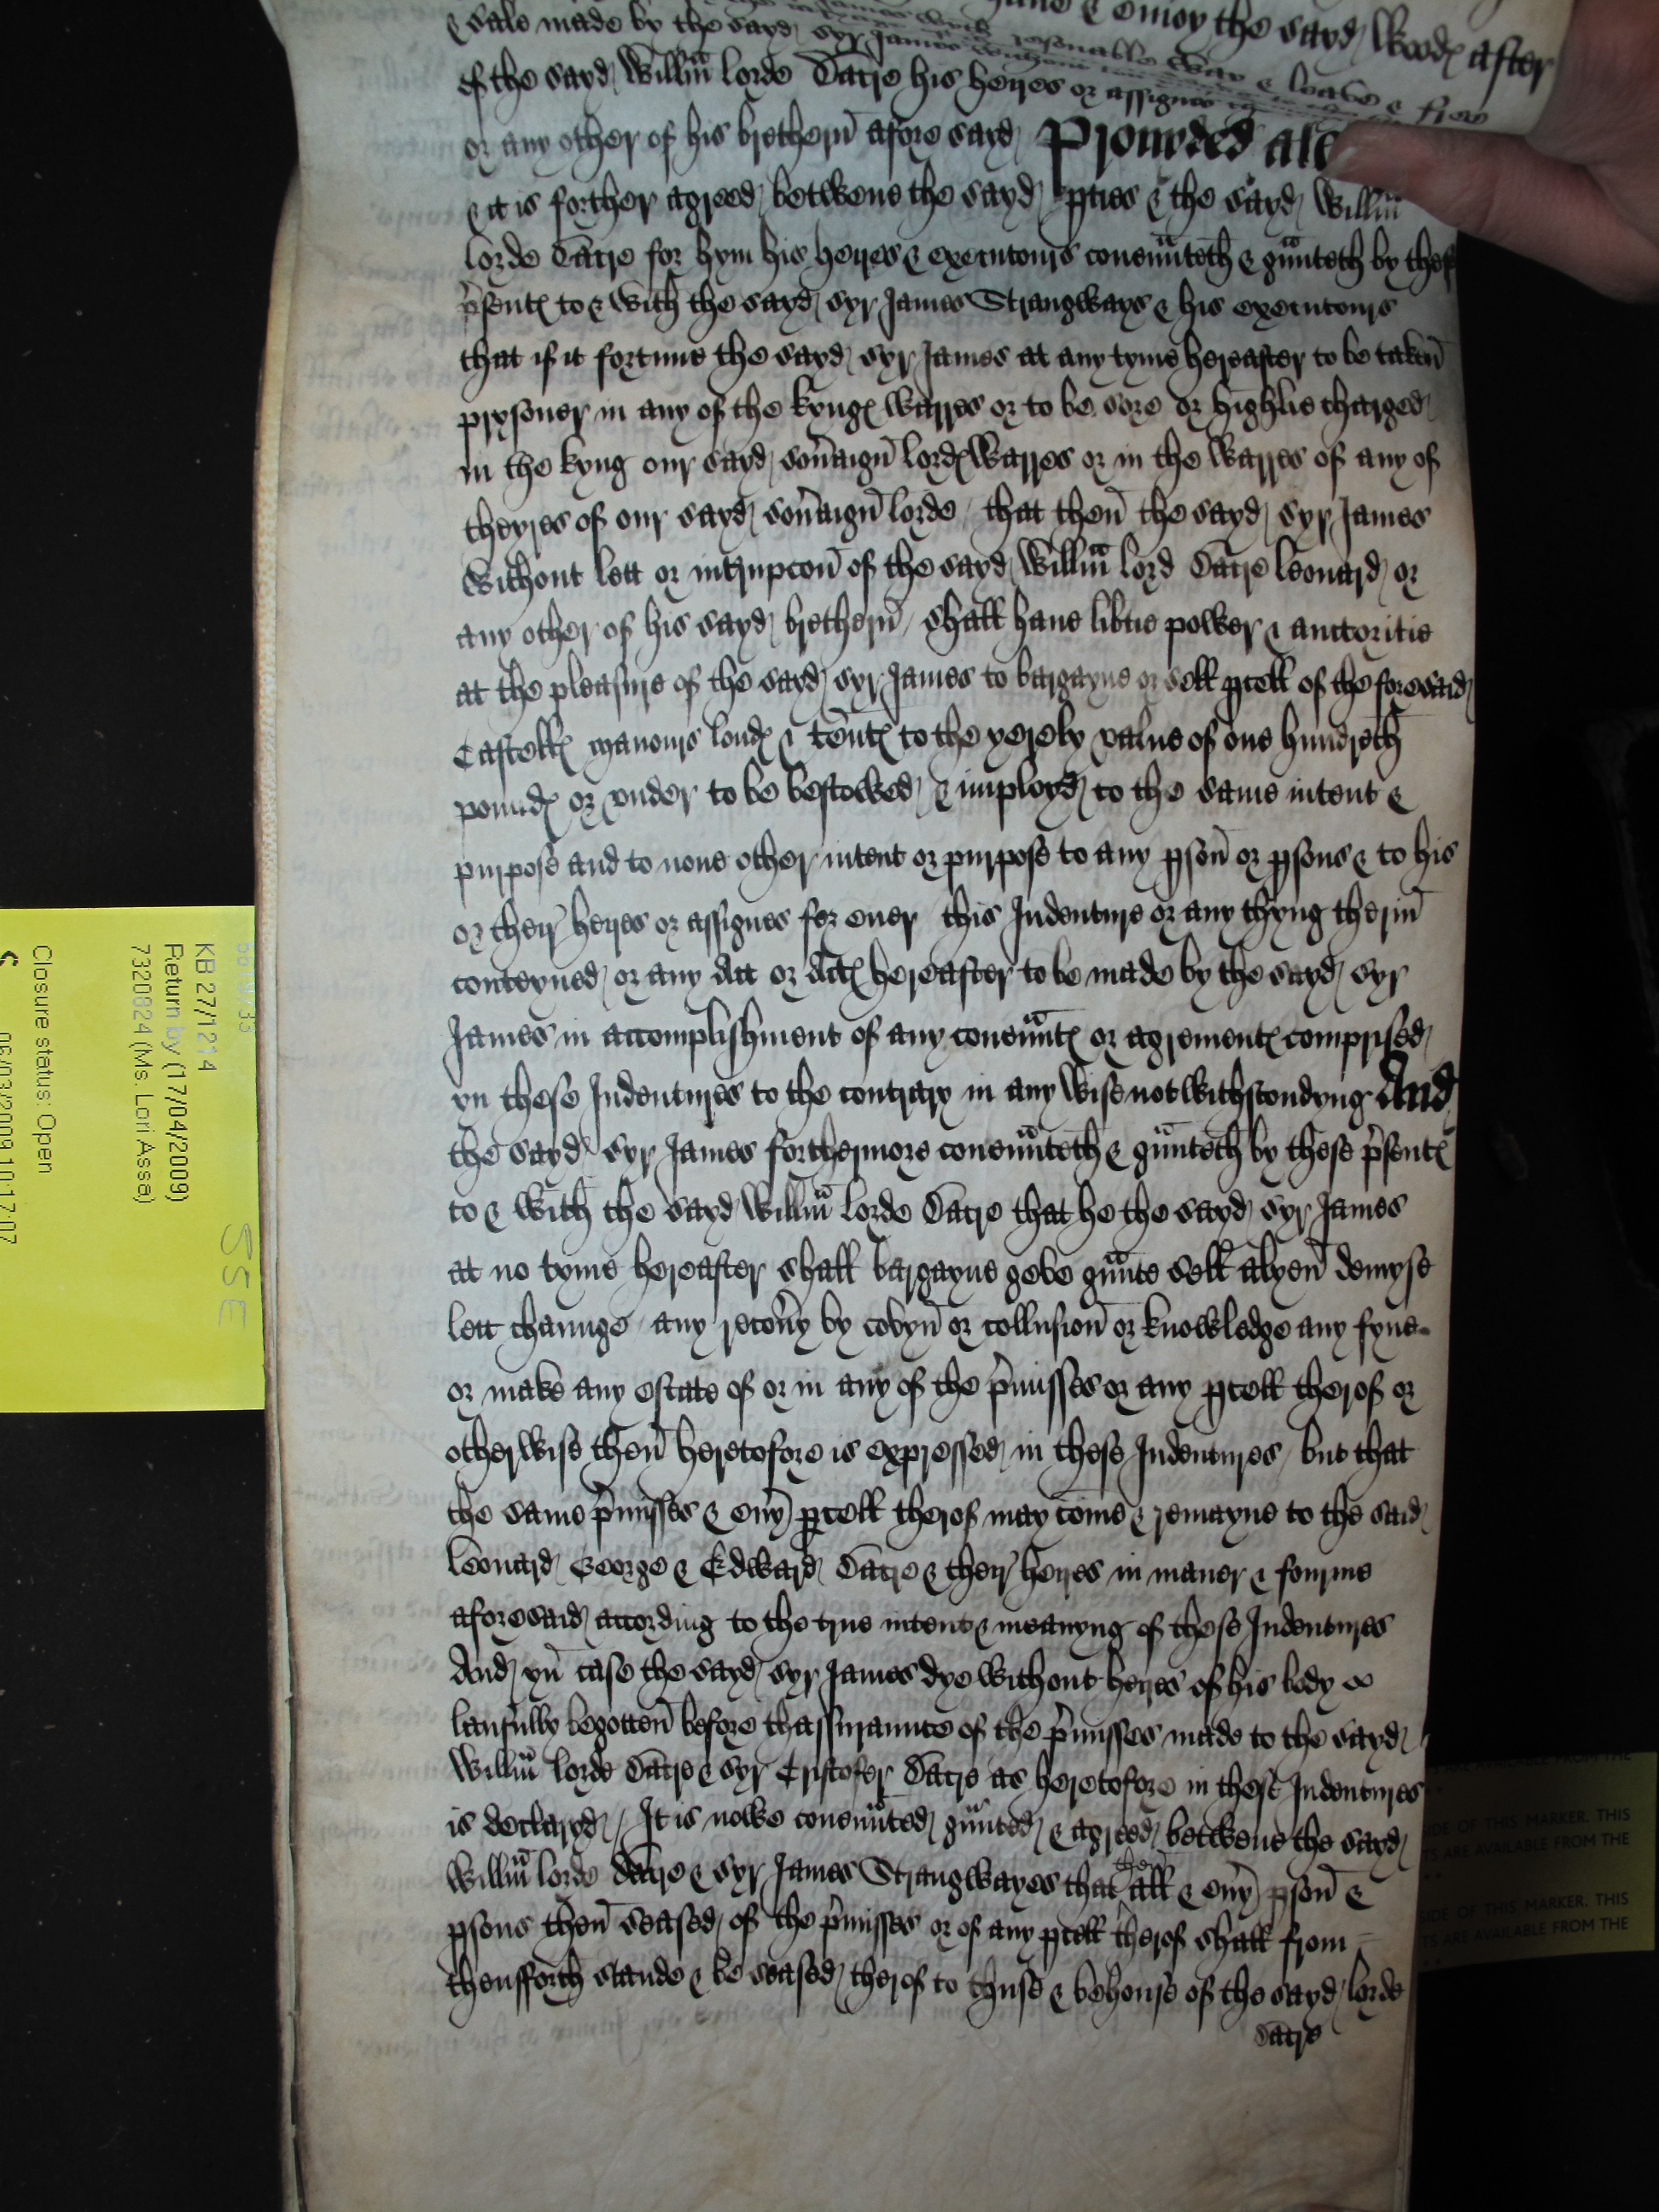 & enioy the sayd woodℓ after
& sale made by the sayd syr James
resonable way & leave & free
of the sayd Willm̄ lorde Dacre his heyres or assignes
or any other of his brethern̄ afore sayd Prouyded
& it is forther agreed betwene the sayd p̱ties & the sayd Willm̄
lorde Dacre for hym his heyres & executours couenn̄teth & gn̄nteth by thes
p̄sentℓ to & with the sayd syr James Strangways & his executours
that if it fortune the sayd syr James at any tyme hereafter to be taken̄
prysoner in any of the kyngℓ warres or to be sore or highlie charged
in the kyng our sayd sou̓aign̄ lordℓ warres or in the warres of any of
theyres of our sayd sou̓aign̄ lorde that then̄ the sayd syr James
without lett or int̓rupcon̄ of the sayd Willm̄ lord Dacre leonard or
any other of his sayd brethern̄ shall haue lib̓tie power & auctoritie
at the pleasure of the sayd syr James to bargayne or sell p̱cell of the foresaid
Castellℓ manours londℓ & ten̄tℓ to the yerely value of one hundreth
poundℓ or vnder to be bestowed & imployd to the same intent &
purpose and to none other intent or purpose to any p̱son̄ or p̱sons & to his
or their heyres or assignes for euer this Indenture or any thyng therin̄
conteyned or any Act or Actℓ hereafter to be made by the sayd syr
James in accomplishment of any couenn̄tℓ or agrementℓ comprised
yn these Indentures to the contrary in any wise notwithstondyng And
the sayd syr James forthermore couenn̄teth & gn̄nteth by these p̄sentℓ
to & with the sayd Willm̄ lorde Dacre that he the sayd syr James
at no tyme hereafter shall bargayne geve gn̄nte sell alyen̄ demyse
lett channge any recou̓y by covyn̄ or collusion̄ or knowledge any fyne
or make any estate of or in any of the p̄misses or any p̱cell therof or
otherwise then̄ heretofore is expressed in these Indentures but that
the same p̄misses & eu̓y p̱cell therof may come & remayne to the said
leonard George & Edward Dacre & their heyres in maner & fourme
aforesaid according to the true intent & meanyng of these Indentures
And yn̄ case the sayd syr James dye without heyres of his body
laufully begotten̄ before thassuraunce of the p̄misses made to the sayd
Willm̄ lorde Dacre & syr Cristofer Dacre as heretofore in these Indentures
is declaryd It is nowe couenn̄ted gn̄nted & agreed betwene the sayd
Willm̄ lorde Dacre & syr James Strangwayes that all & eu̓y p̱son̄ &
p̱sons then̄ seased of the p̄misses or of any p̱cell therof shall from
thensfforth stande & be seased therof to thuse & behouse of the sayd lorde
Dacre
KB 27/1214
Return by (17/04/2009)
7320824 (Ms. Lori Asse)
Closure status: Open
06/03/2009 10:17:07
SSE
ARE AVAILABLE FROM THE
SIDE OF THIS MARKER. THIS
TS ARE AVAILABLE FROM THE
SIDE OF THIS MARKER. THIS
TS ARE AVAILABLE FROM THE